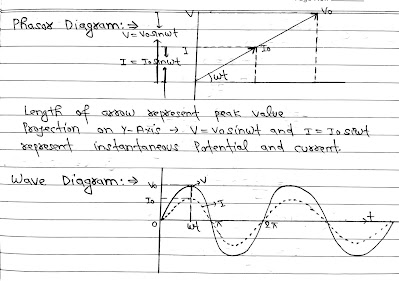 Phasor Diagram:→
V = V₀sinωt
I = I₀sinωt
V
V₀
I
I₀
ωt
Length of arrow represent peak value
Projection on Y-Axis → V = V₀sinωt and I = I₀sinωt
represent instantaneous Potential and current.
Wave Diagram:→
V₀
I₀
O
V
I
ωt
π
2π
t